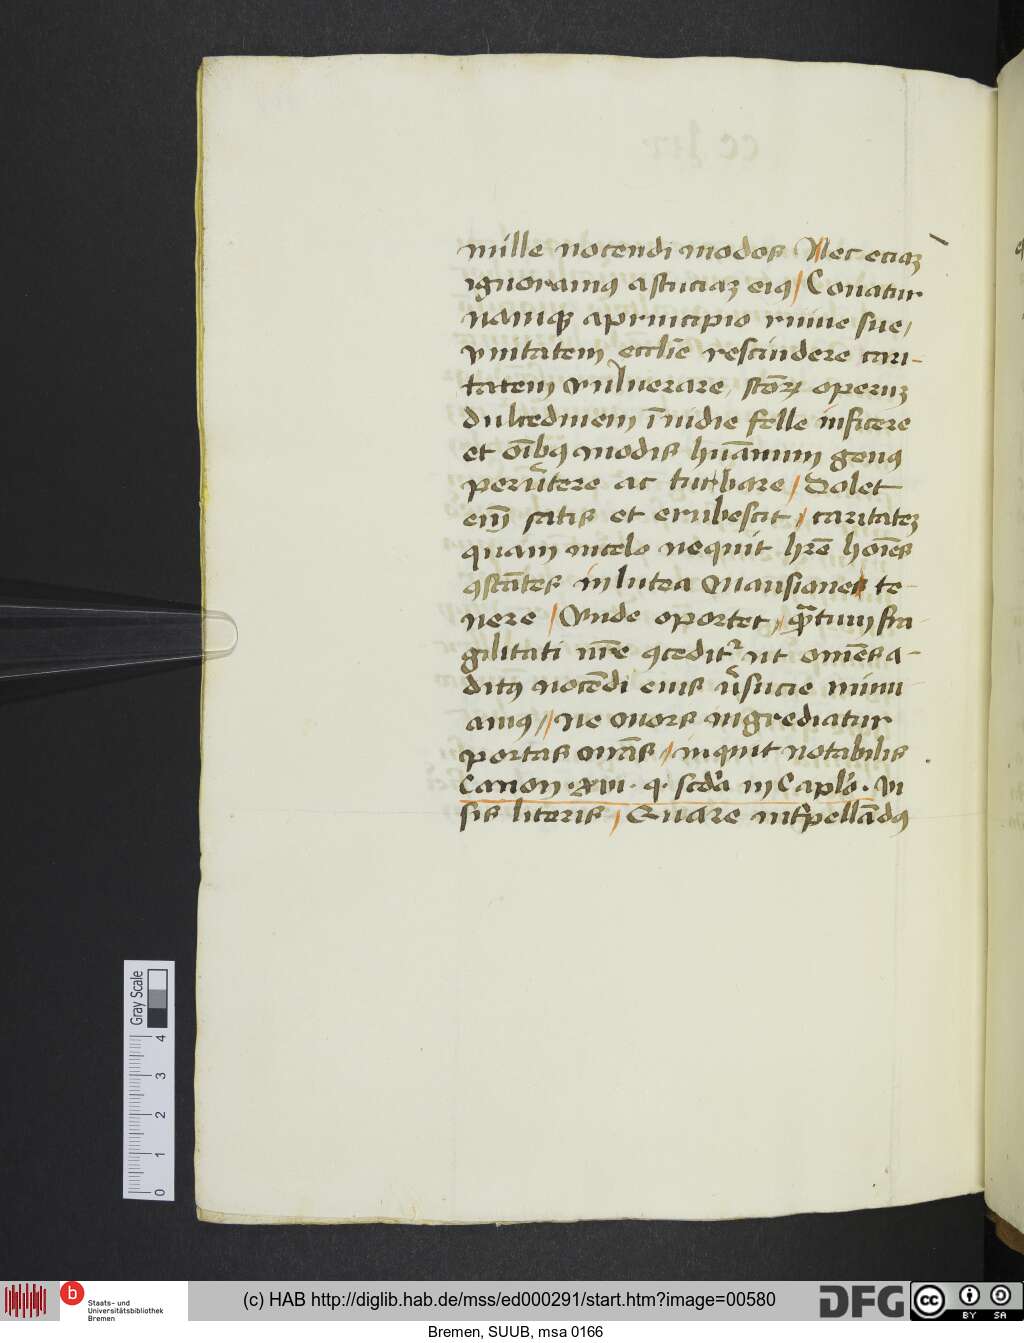 mille nocendi modos Nec eciaꝫ
ignoramꝰ astuciaꝫ eiꝰ / Conatur
namqꝫ a principio ruine sue /
vnitatem eccl̄ie rescindere cari-
tatem vulnerare / sctōrꝝ operuꝫ
dulcedinem īnuidie felle inficere
et oībꝰ modis hūanum genus
peru̓tere ac turbare / Dolet
eīm satis et erubescit / caritateꝫ
quam in celo nequit hr̄e hōies
ꝯstātes in lutea mansione te-
nere / Unde oportet / qᷓtum fra-
gilitati nr̄e ꝯceditᷣ ut omēs a-
ditꝰ nocēdi eius v̓sucie mini
amꝰ // ne mors ingrediatur
portas nr̄as / inquit notabilis
Canon · xvi · q · scd̓a in Caplo · Vi
sis literis / Quare int̓pellādꝰ
Gray Scale
4
3
2
1
0
b
Staats- und
Universitätsbibliothek
Bremen
(c) HAB http://diglib.hab.de/mss/ed000291/start.htm?image=00580
DFG
cc BY SA
Bremen, SUUB, msa 0166